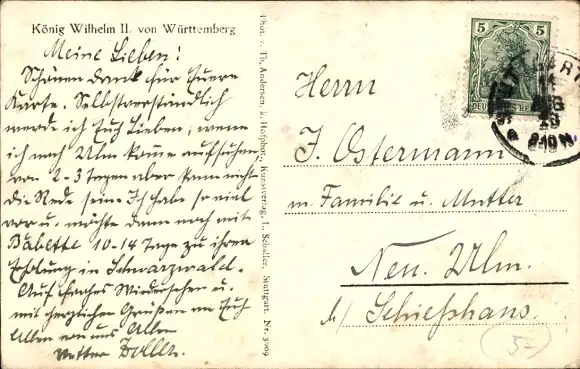 König Wilhelm II. von Württemberg
Meine Lieben!
Schönen Dank für Euere
Karte. Selbstverständlich
werde ich Euch Lieben, wenn
ich nach Ulm komme aufsuchen,
von 2-3 Tagen aber kann nicht
die Rede sein. Ich habe so viel
vor u. möchte dann noch mit
Babette 10-14 Tage zu ihrer
Erholung in Schwarzwald.
Auf frohes Wiedersehen u.
mit herzlichen Grüßen an Euch
Allen von uns Allen
Vetter
Phot. v. Th. Andersen, k. Hofphot., Kunstverlag, L. Schaller, Stuttgart. Nr. 3009
5 5
DEUTSCHES REICH
STUTTGART
Herrn
J. Ostermann
m. Familie u. Mutter
Neu. Ulm.
Schießhaus.
5-